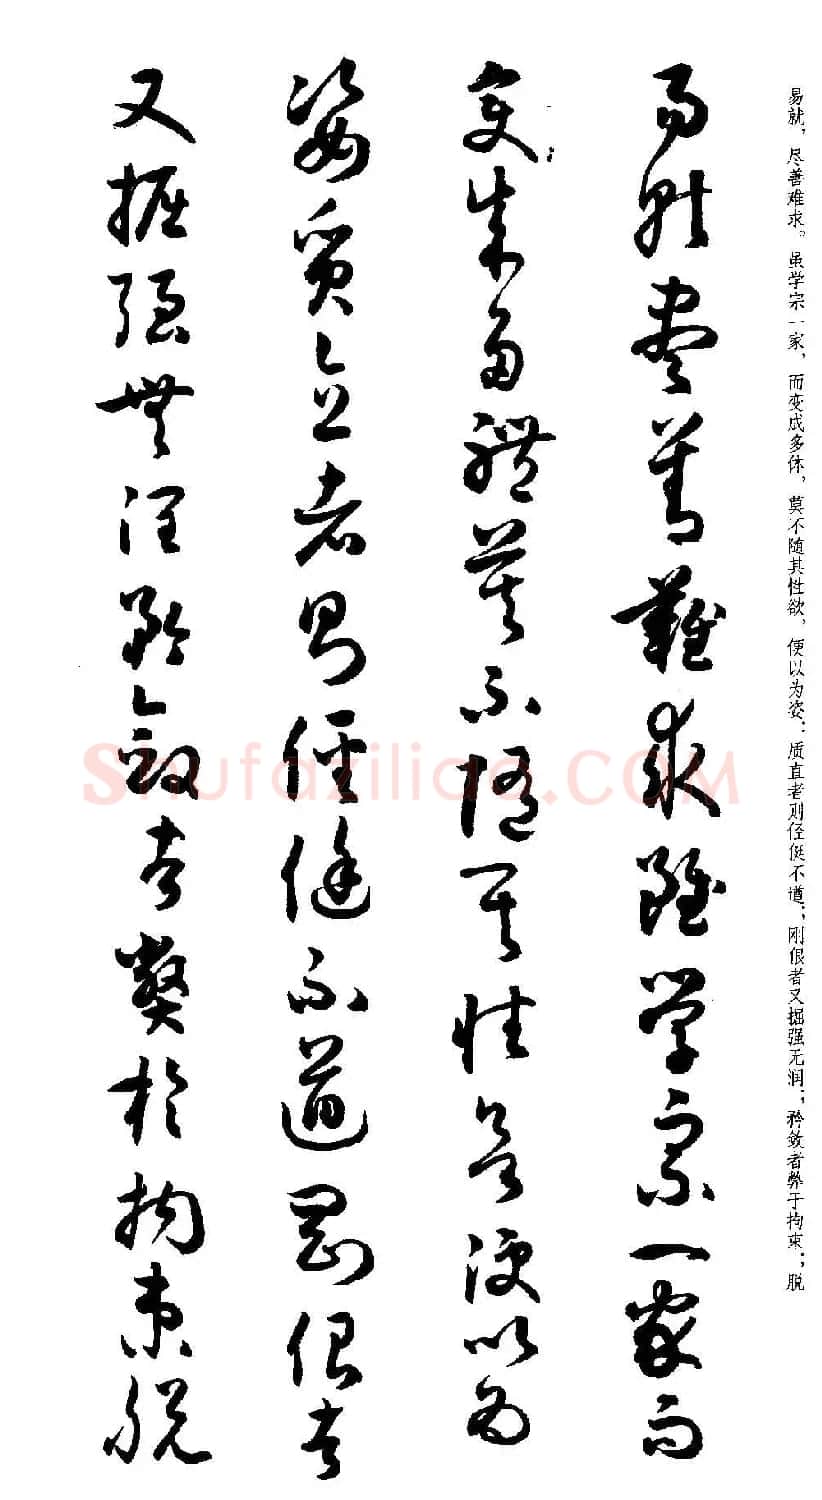 易就，尽善难求。虽学宗一家，而变成多体，莫不随其性欲，便以为姿：质直者则径侹不遒；刚佷者又掘强无润；矜敛者弊于拘束；脱
易就盡善難求雖學宗一家而
變成多體莫不隨其性欲便以為
姿質直者則俓侹不遒剛佷者
又掘強無潤矜斂者弊於拘束脫
Shufaziliao.COM